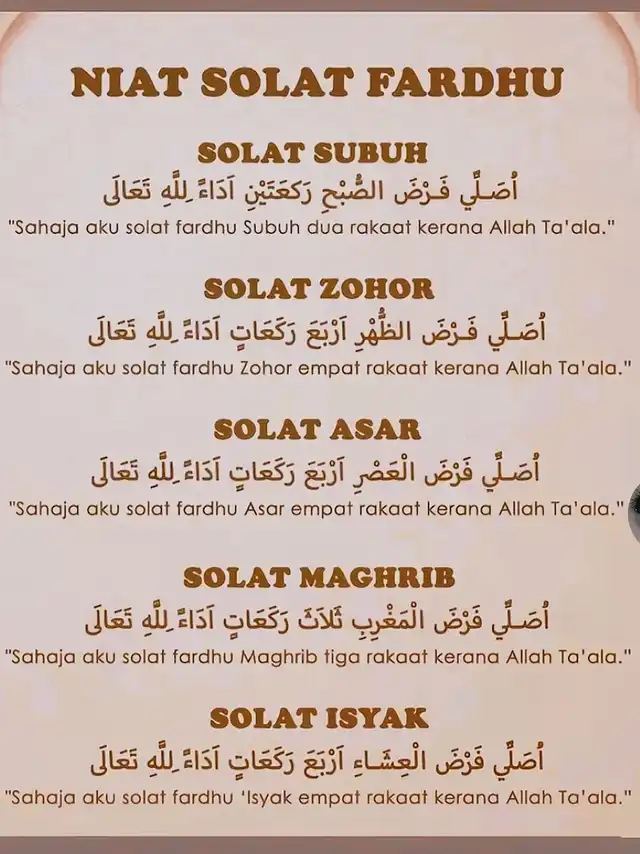 NIAT SOLAT FARDHU
SOLAT SUBUH
اُصَلِّي فَرْضَ الصُّبْحِ رَكعَتَيْنِ اَدَاءً لِلَّهِ تَعَالَى
"Sahaja aku solat fardhu Subuh dua rakaat kerana Allah Ta'ala."
SOLAT ZOHOR
اُصَلِّي فَرْضَ الظُّهْرِ اَرْبَعَ رَكَعَاتٍ اَدَاءً لِلَّهِ تَعَالَى
"Sahaja aku solat fardhu Zohor empat rakaat kerana Allah Ta'ala."
SOLAT ASAR
اُصَلِّي فَرْضَ الْعَصْرِ اَرْبَعَ رَكَعَاتٍ اَدَاءً لِلَّهِ تَعَالَى
"Sahaja aku solat fardhu Asar empat rakaat kerana Allah Ta'ala."
SOLAT MAGHRIB
اُصَلِّي فَرْضَ الْمَغْرِبِ ثَلَاثَ رَكَعَاتٍ اَدَاءً لِلَّهِ تَعَالَى
"Sahaja aku solat fardhu Maghrib tiga rakaat kerana Allah Ta'ala."
SOLAT ISYAK
اُصَلِّي فَرْضَ الْعِشَاءِ اَرْبَعَ رَكَعَاتٍ اَدَاءً لِلَّهِ تَعَالَى
"Sahaja aku solat fardhu 'Isyak empat rakaat kerana Allah Ta'ala."